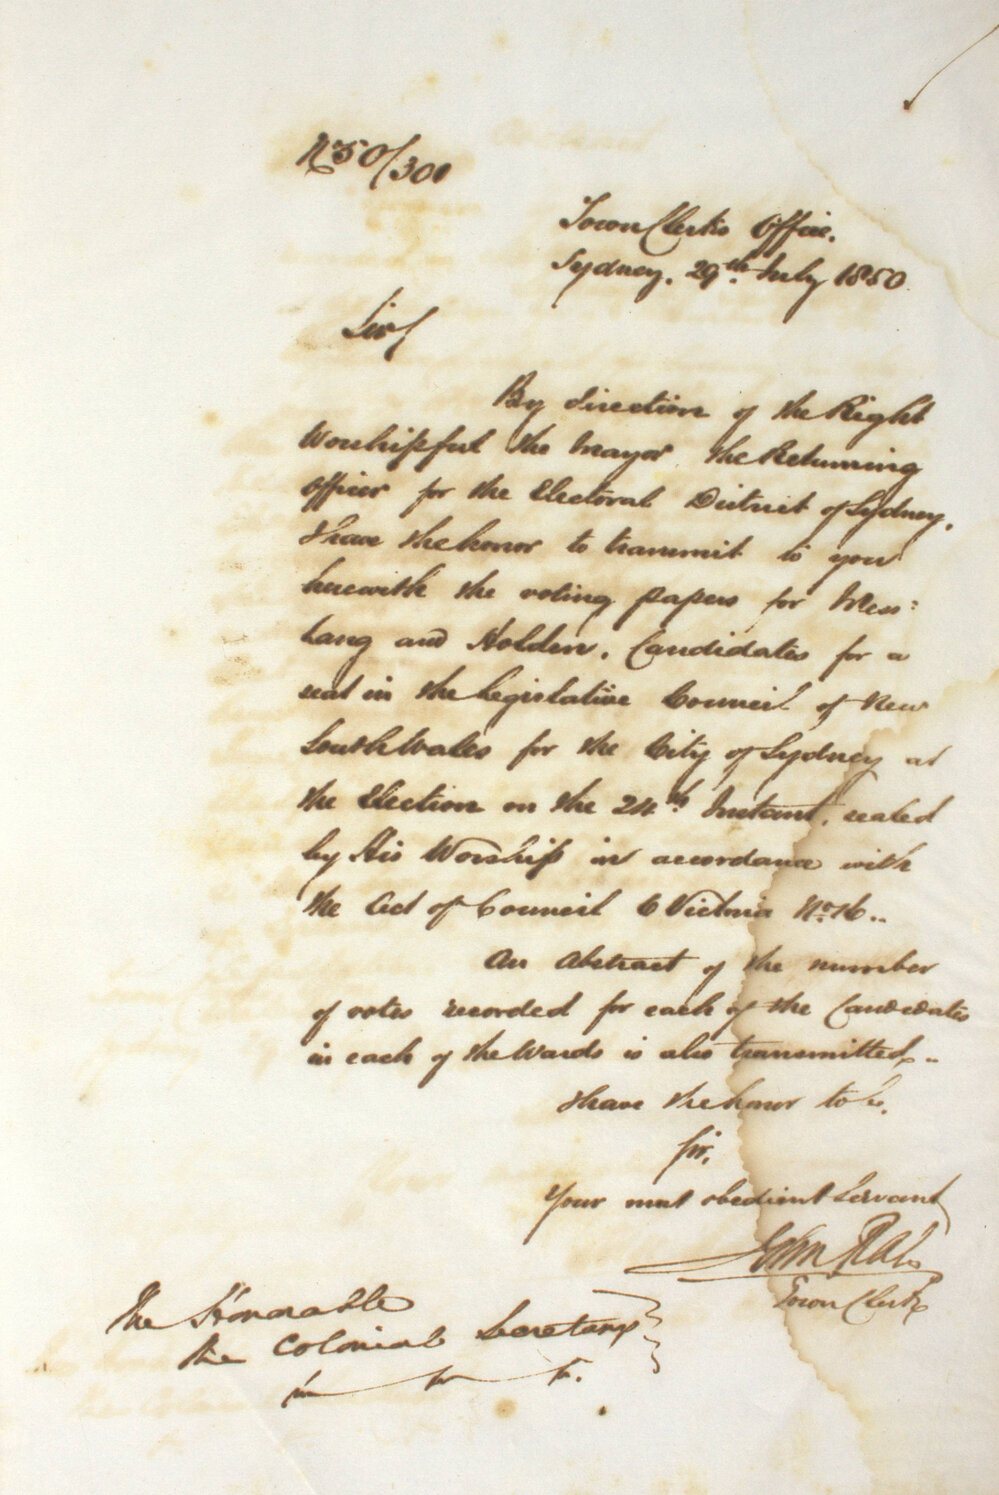 No 50/300
Town Clerks Office.
Sydney. 29th July 1850
Sir/
By direction of the Right
Worshipful the Mayor the Returning
Officer for the Electoral District of Sydney.
I have the honor to transmit to you
herewith the voting papers for Mess:
Lang and Holden. Candidates for a
seat in the Legislative Council of New
South Wales for the City of Sydney at
the Election on the 24th Instant, sealed
by His Worship in accordance with
the Act of Council 6 Victoria No. 16..
An Abstract of the number
of votes recorded for each of the Candidates
in each of the Wards is also transmitted..
I have the honor to be.
Sir,
Your most obedient Servant
John Rae
Town Clerk
The Honorable
The Colonial Secretary